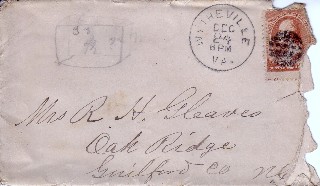 WYTHEVILLE
DEC
6 PM
VA.
Mrs R H Gleaves
Oak Ridge
Guilford Co